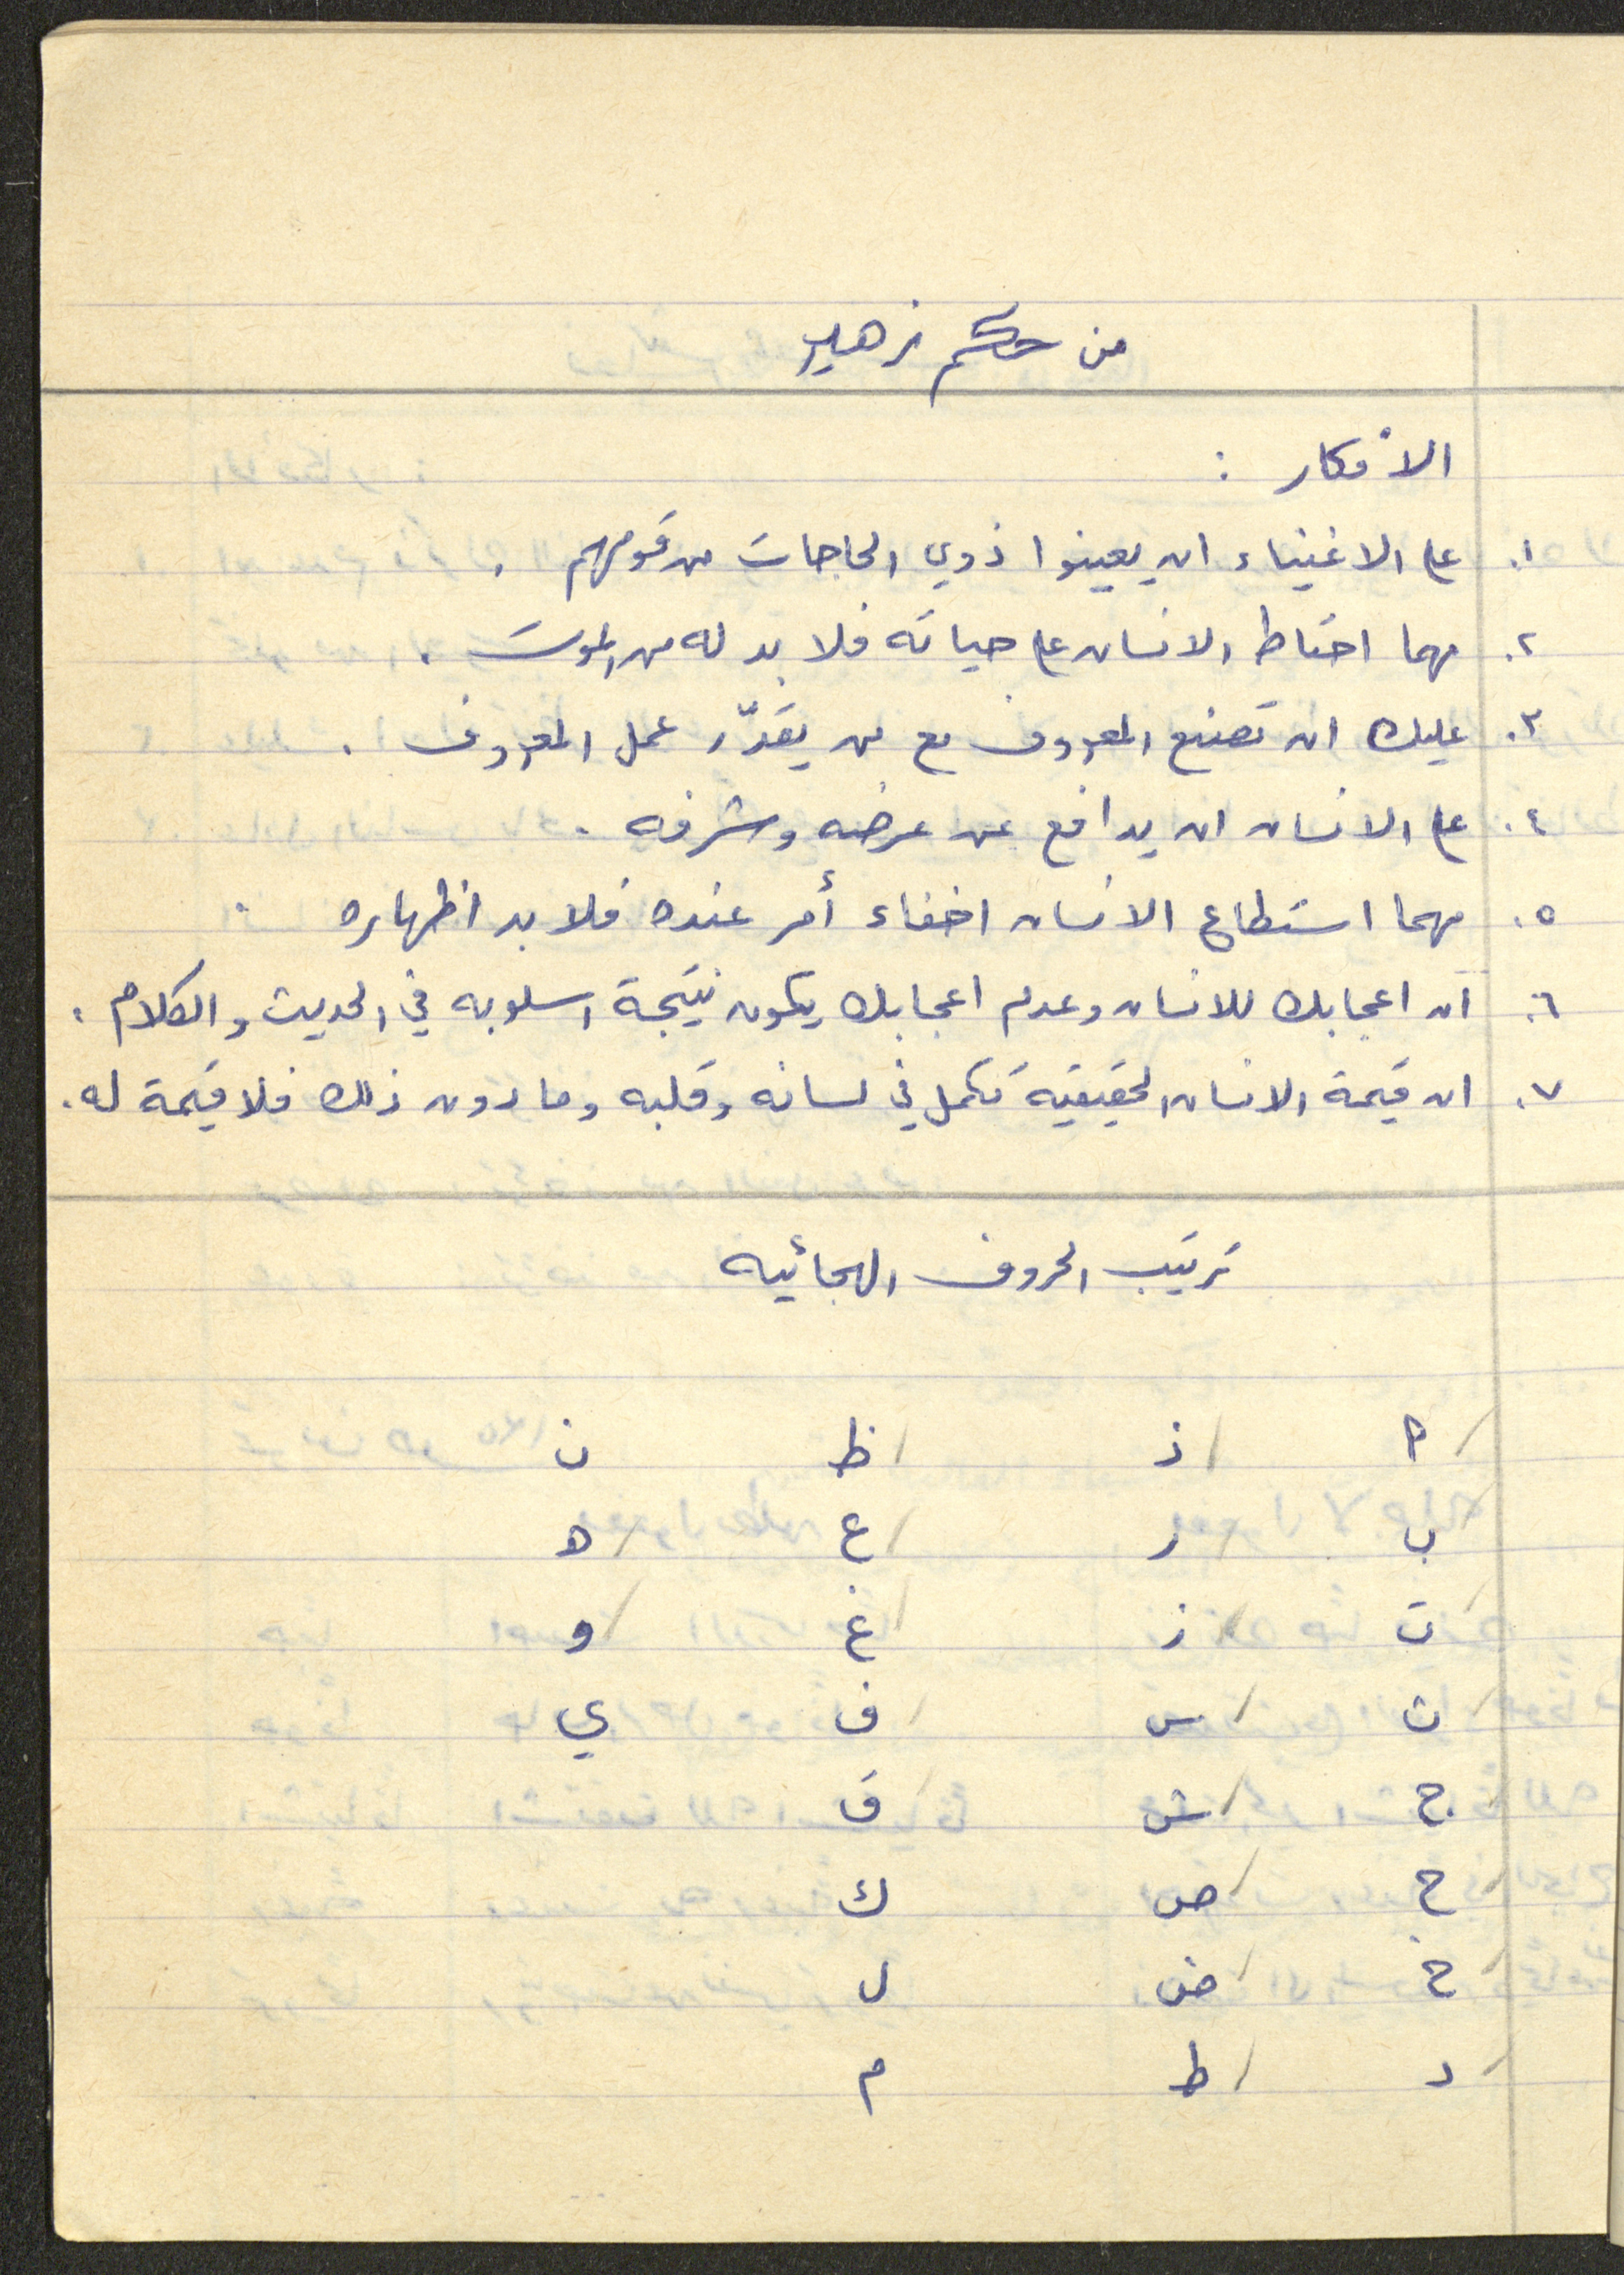 من حكم زهير
الأفكار :
١. على الاغنياء ان يعينوا ذوي الحاجات من قومهم .
٢. مهما احتاط الانسان على حياته فلا بد له من الموت .
٣. عليك ان تصنع المعروف مع من يقدّر عمل المعروف .
٤. على الانسان ان يدافع عن عرضه وشرفه .
٥. مهما استطاع الانسان اخفاء أمر عنده فلا بد اظهاره .
٦. ان اعجابك للانسان وعدم اعجابك يكون نتيجة اسلوبه في الحديث والكلام .
٧. ان قيمة الانسان الحقيقية تكمل في لسانه وقلبه وما دون ذلك فلا قيمة له .
ترتيب الحروف الهجائيه
أ ذ ظ ن
ب ر ع ه
ت ز غ و
ث س ف ي
ج ش ق
ح ص ك
خ ض ل
د ط م